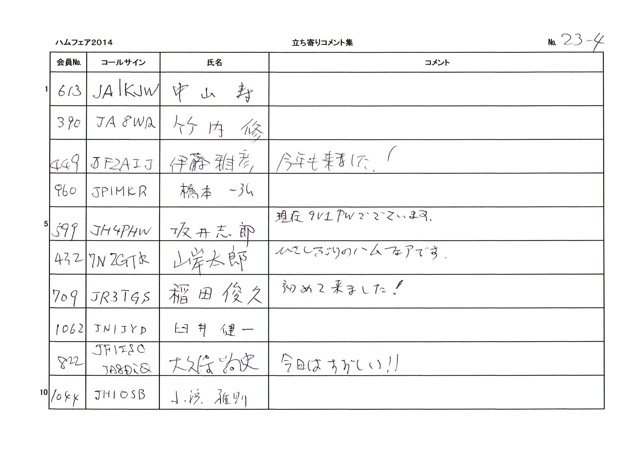 ハムフェア2014 立ち寄りコメント集 No. 23-4
会員No. コールサイン 氏名 コメント
1 613 JA1KJW 中山 寿
390 JA8WQ 竹内 修
449 JF2AIJ 伊藤雅彦 今年も来ました!
960 JP1MKR 橋本
5 599 JH4PHW 坂井志郎 現在9V1PWででています.
432 7N2GTR 山岸太郎 ひさしぶりのハムフェアです.
709 JR3TGS 稲田俊久 初めて来ました!
1062 JN1JYD 臼井健一
822 JF1ISC
JA8DiQ 今日は!!
10 1044 JH1OSB 雅則